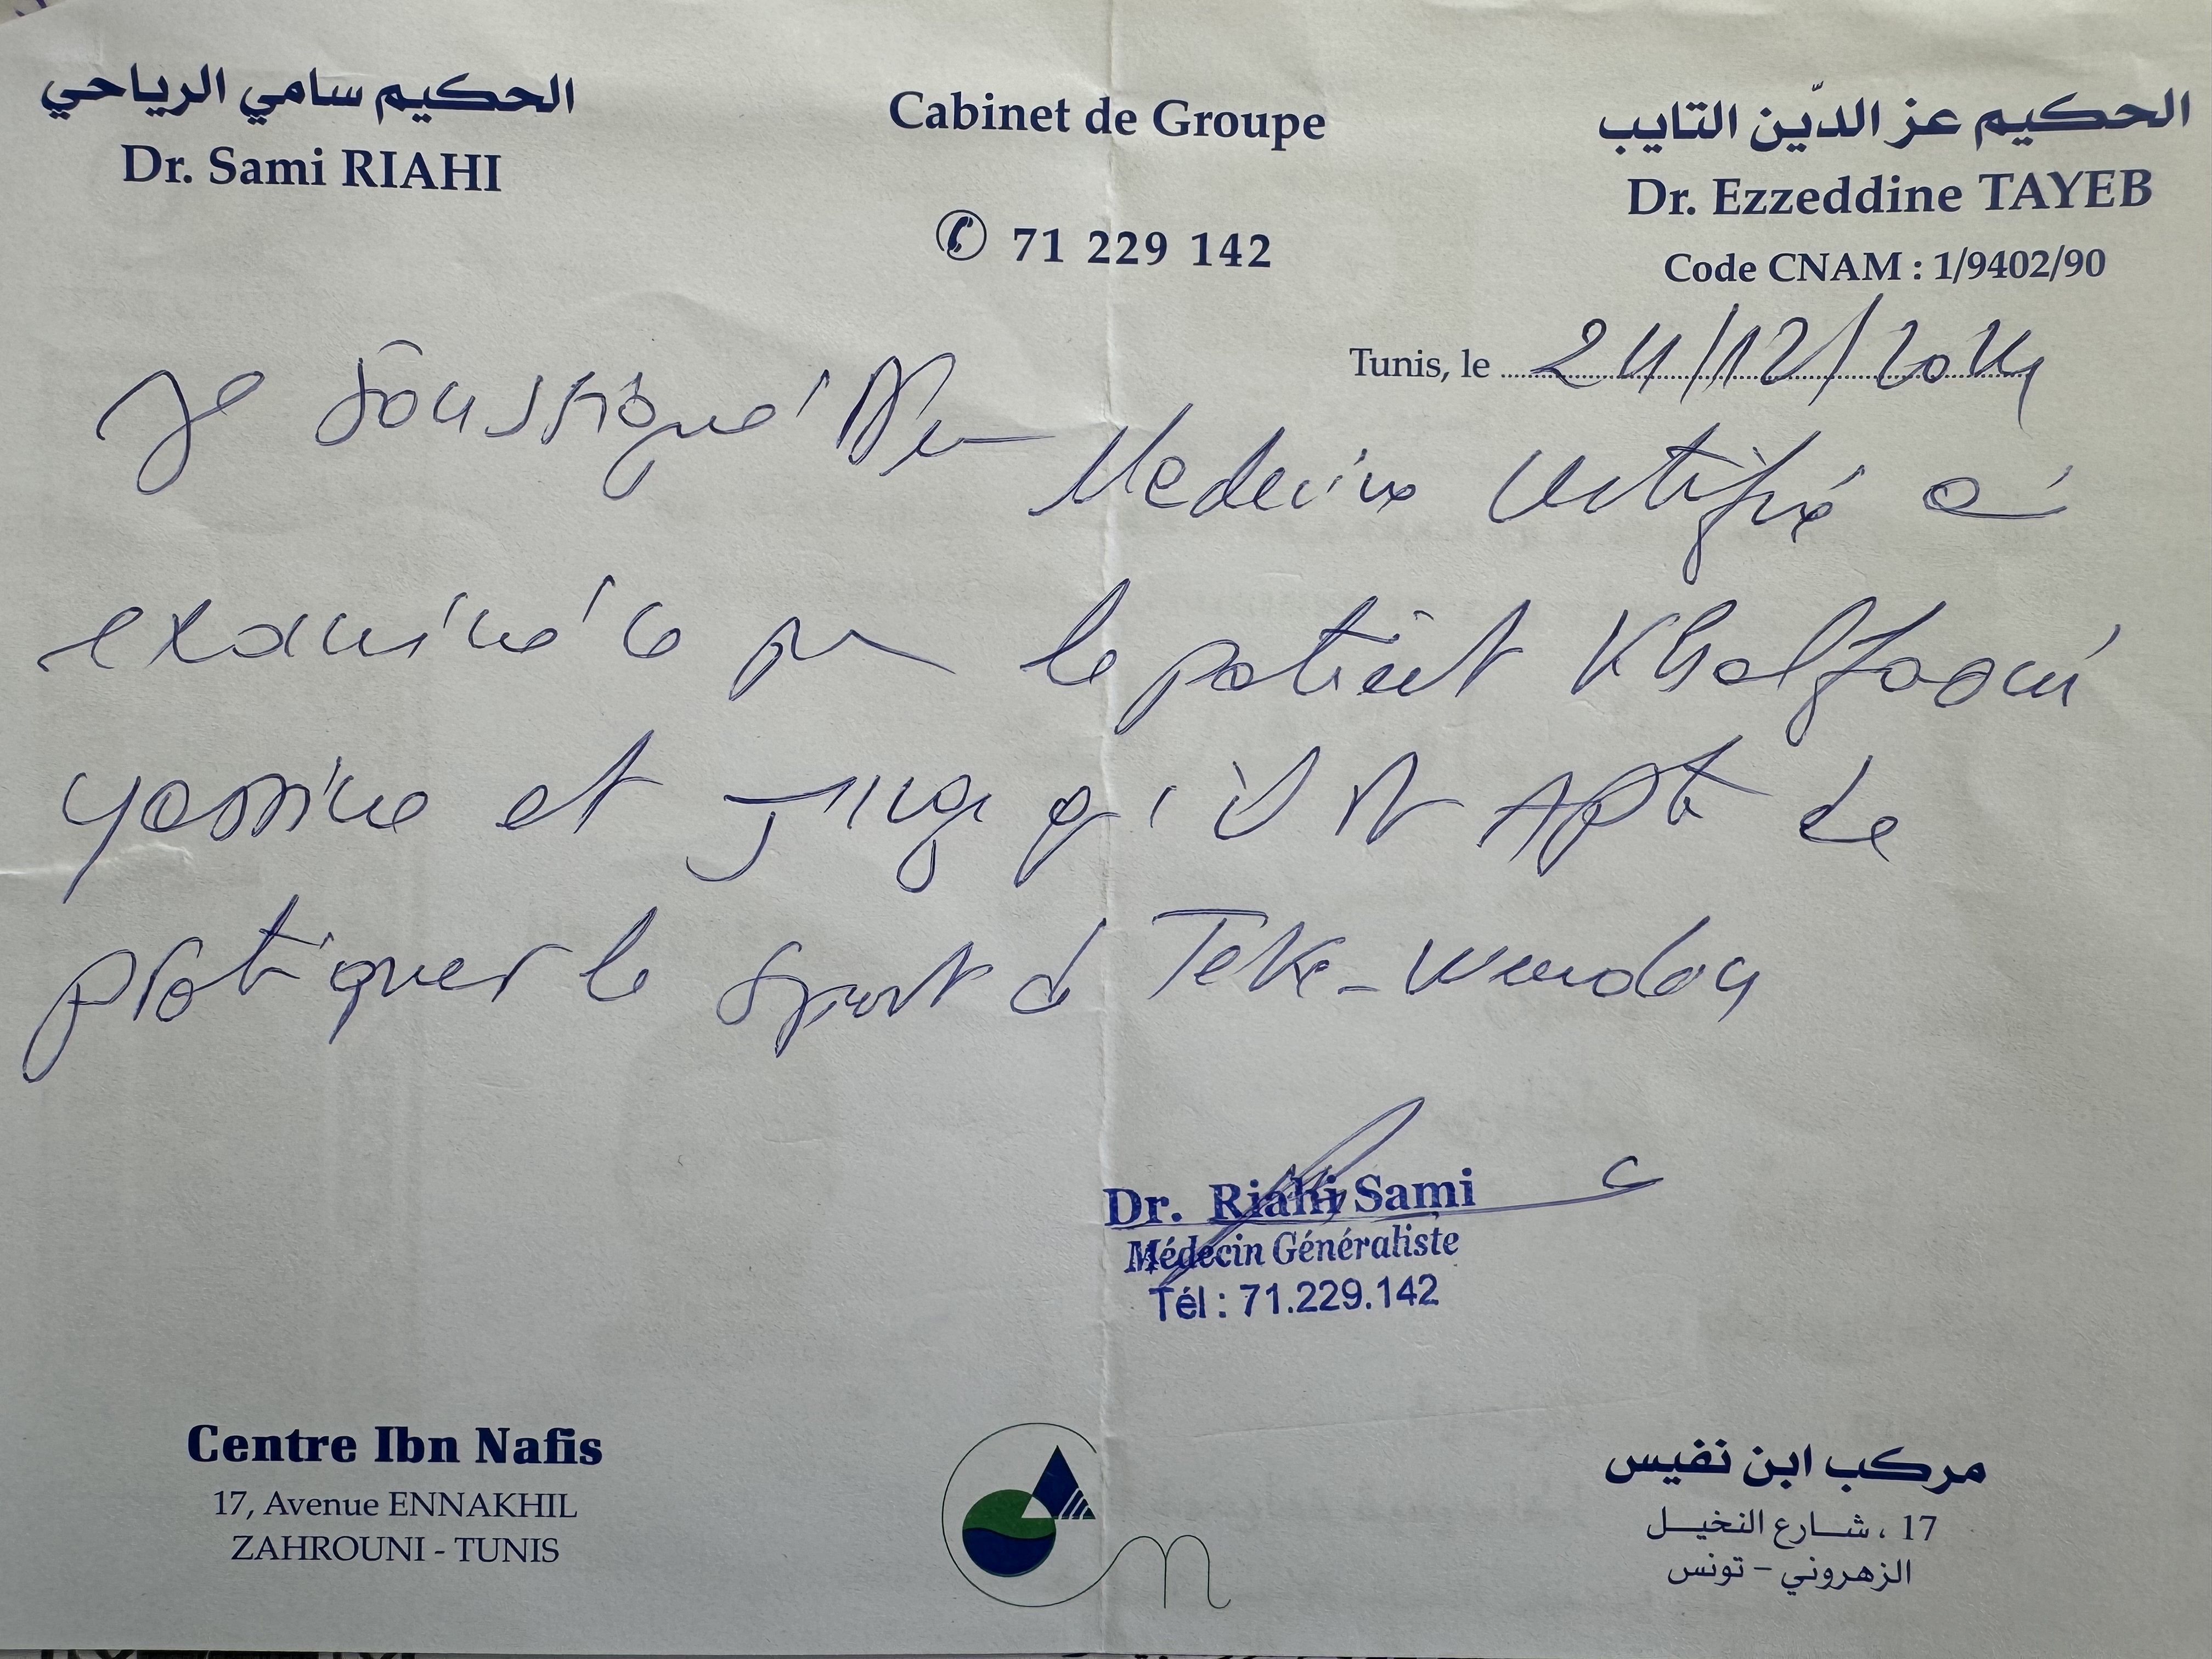 الحكيم سامي الرياحي
Dr. Sami RIAHI
Cabinet de Groupe
71 229 142
الحكيم عز الدّين التايب
Dr. Ezzeddine TAYEB
Code CNAM : 1/9402/90
Tunis, le 24/12/2024
Je soussigné
Medecin certifie
examiné le patient Khalfaoui
yassine et juge qu'il est Apte de
pratiquer le sport de Teke-wendoy
Dr. Riahi Sami
Médecin Généraliste
Tél : 71.229.142
Centre Ibn Nafis
17, Avenue ENNAKHIL
ZAHROUNI - TUNIS
مركب ابن نفيس
17 ، شـــارع النخيـــل
الزهروني - تونس